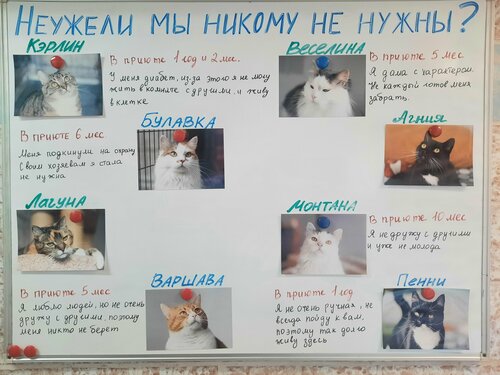 Неужели мы никому не нужны?
Кэрлин
В приюте 1 год и 2 мес.
У меня диабет, из за этого я не могу
жить в комнате с другими, и живу
в клетке
Веселина
В приюте 5 мес
Я дама с характером.
Не каждый готов меня
забрать.
Булавка
В приюте 6 мес
Меня подкинули на охрану
Своим хозяевам я стала
не нужна
Агния
Лагуна
Монтана
В приюте 10 мес
Я не дружу с другими
и уже не молода
Варшава
В приюте 5 мес
Я люблю людей, но не очень
дружу с другими, поэтому
меня никто не берет
Пенни
В приюте 1 год
Я не очень ручная, не
всегда пойду к вам,
поэтому так долго
живу здесь